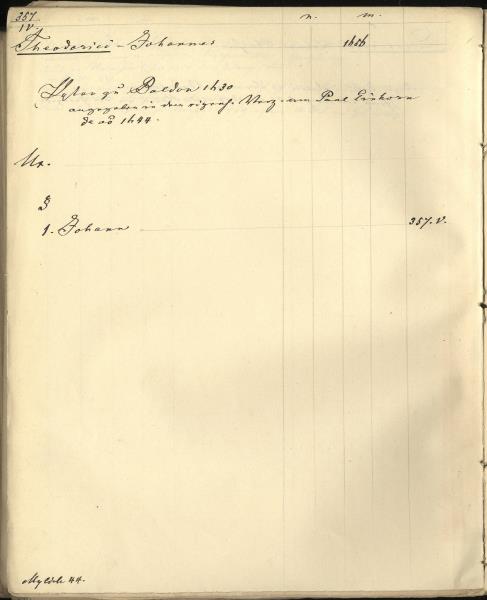 357
IV.
n. m.
Theodorici - Johannes 1656
Pastor zu Baldon 1630
angegeben in dem eigenh. Verz. von Paul Einhorn
de ao 1644.
Ux.
3
1. Johann 357. V.
44.